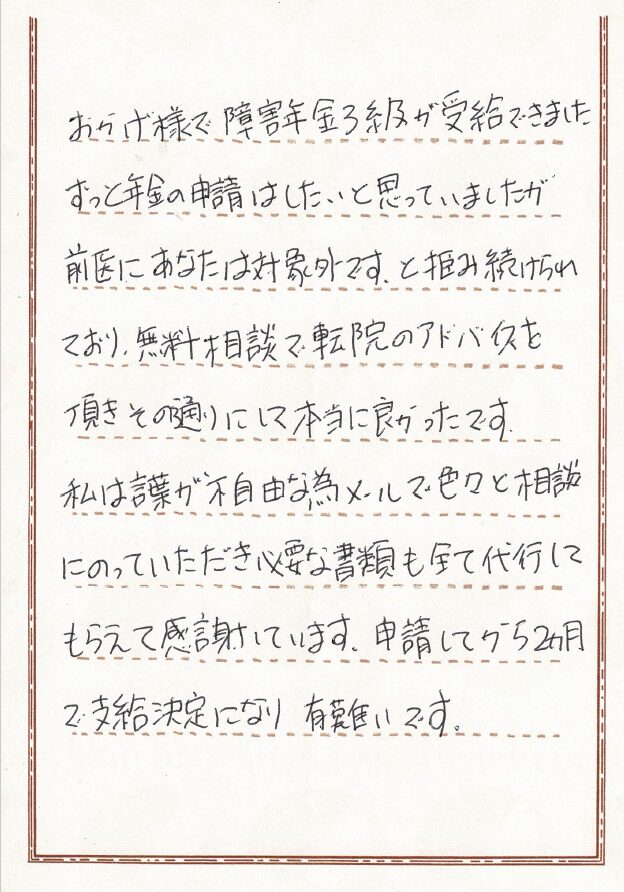 おかげ様で障害年金3級が受給できました
ずっと年金の申請はしたいと思っていましたが
前医にあなたは対象外です、と拒み続けられ
ており、無料相談で転院のアドバイスを
頂きその通りにして本当に良かったです。
私は言葉が不自由な為メールで色々と相談
にのっていただき必要な書類も全て代行して
もらえて感謝しています。申請してから2ヵ月
で支給決定になり有難いです。